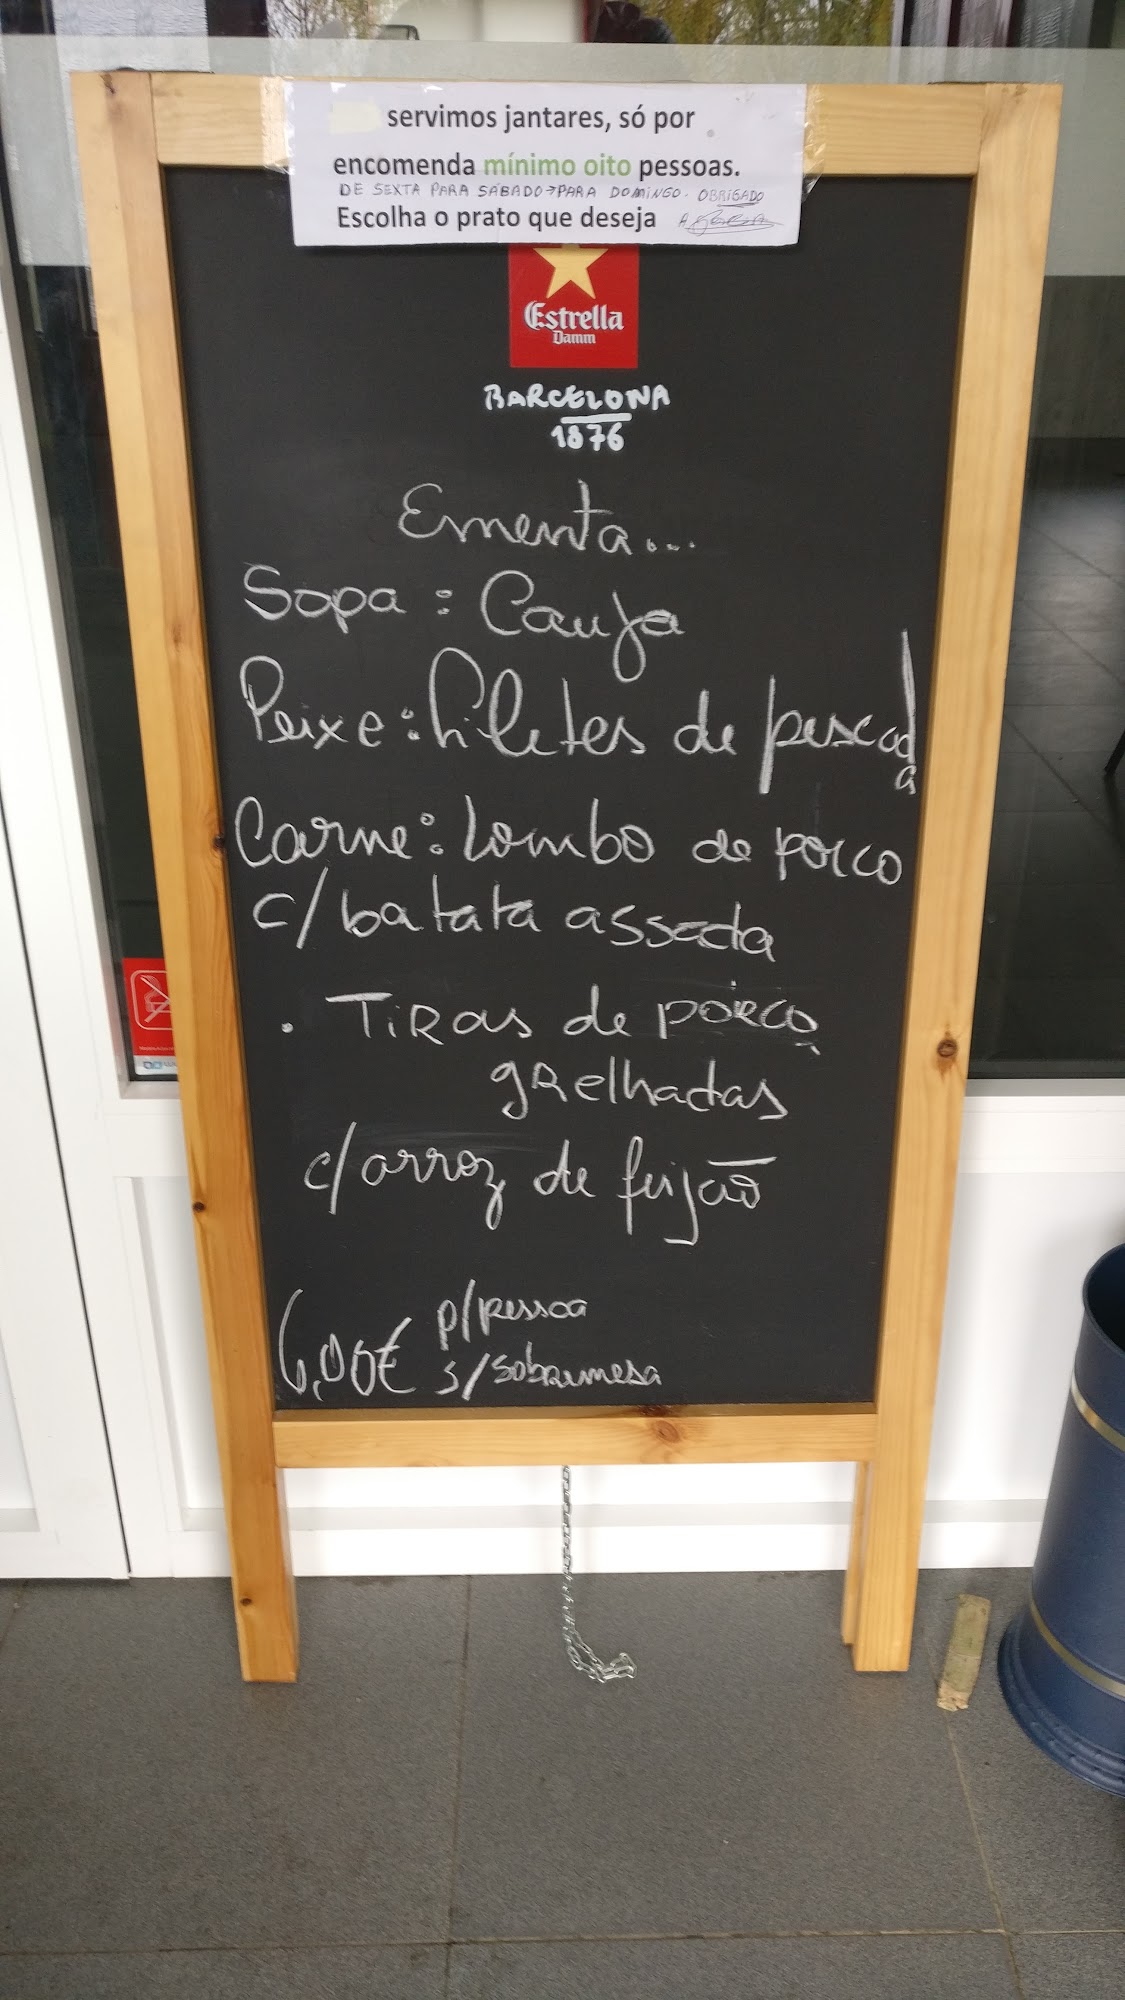 servimos jantares, só por
encomenda mínimo oito pessoas.
DE SEXTA PARA SÁBADO→PARA DOMINGO. OBRIGADO
Escolha o prato que deseja
Estrella
Damm
BARCELONA
1876
Ementa...
Sopa: Canja
Peixe: filetes de pescada
Carne: Lombo de porco
c/ batata assada
. TiRas de poRco
gRelhadas
c/ arroz de feijão
6,00€ p/pessoa
s/sobremesa